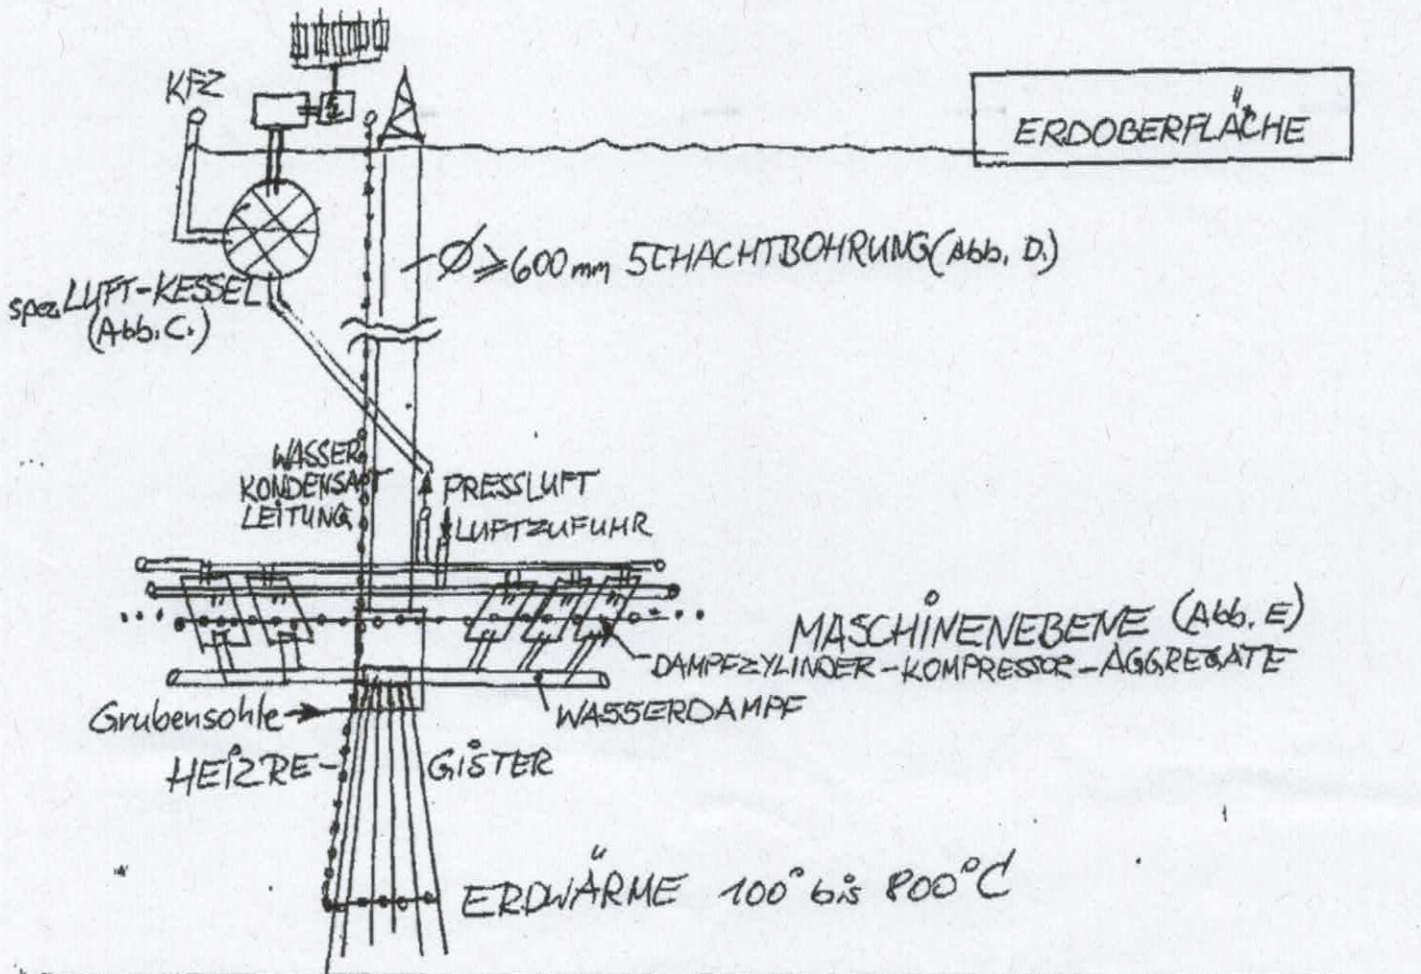 KFZ
ERDOBERFLÄCHE
Ø ≥ 600 mm SCHACHTBOHRUNG (Abb. D.)
spez. LUFT-KESSEL
(Abb. C.)
WASSER
KONDENSAT
LEITUNG
PRESSLUFT
LUFTZUFUHR
MASCHINENEBENE (Abb. E)
DAMPFZYLINDER-KOMPRESSOR-AGGREGATE
Grubensohle
WASSERDAMPF
HEIZRE-GISTER
ERDWÄRME 100° bis 800°C